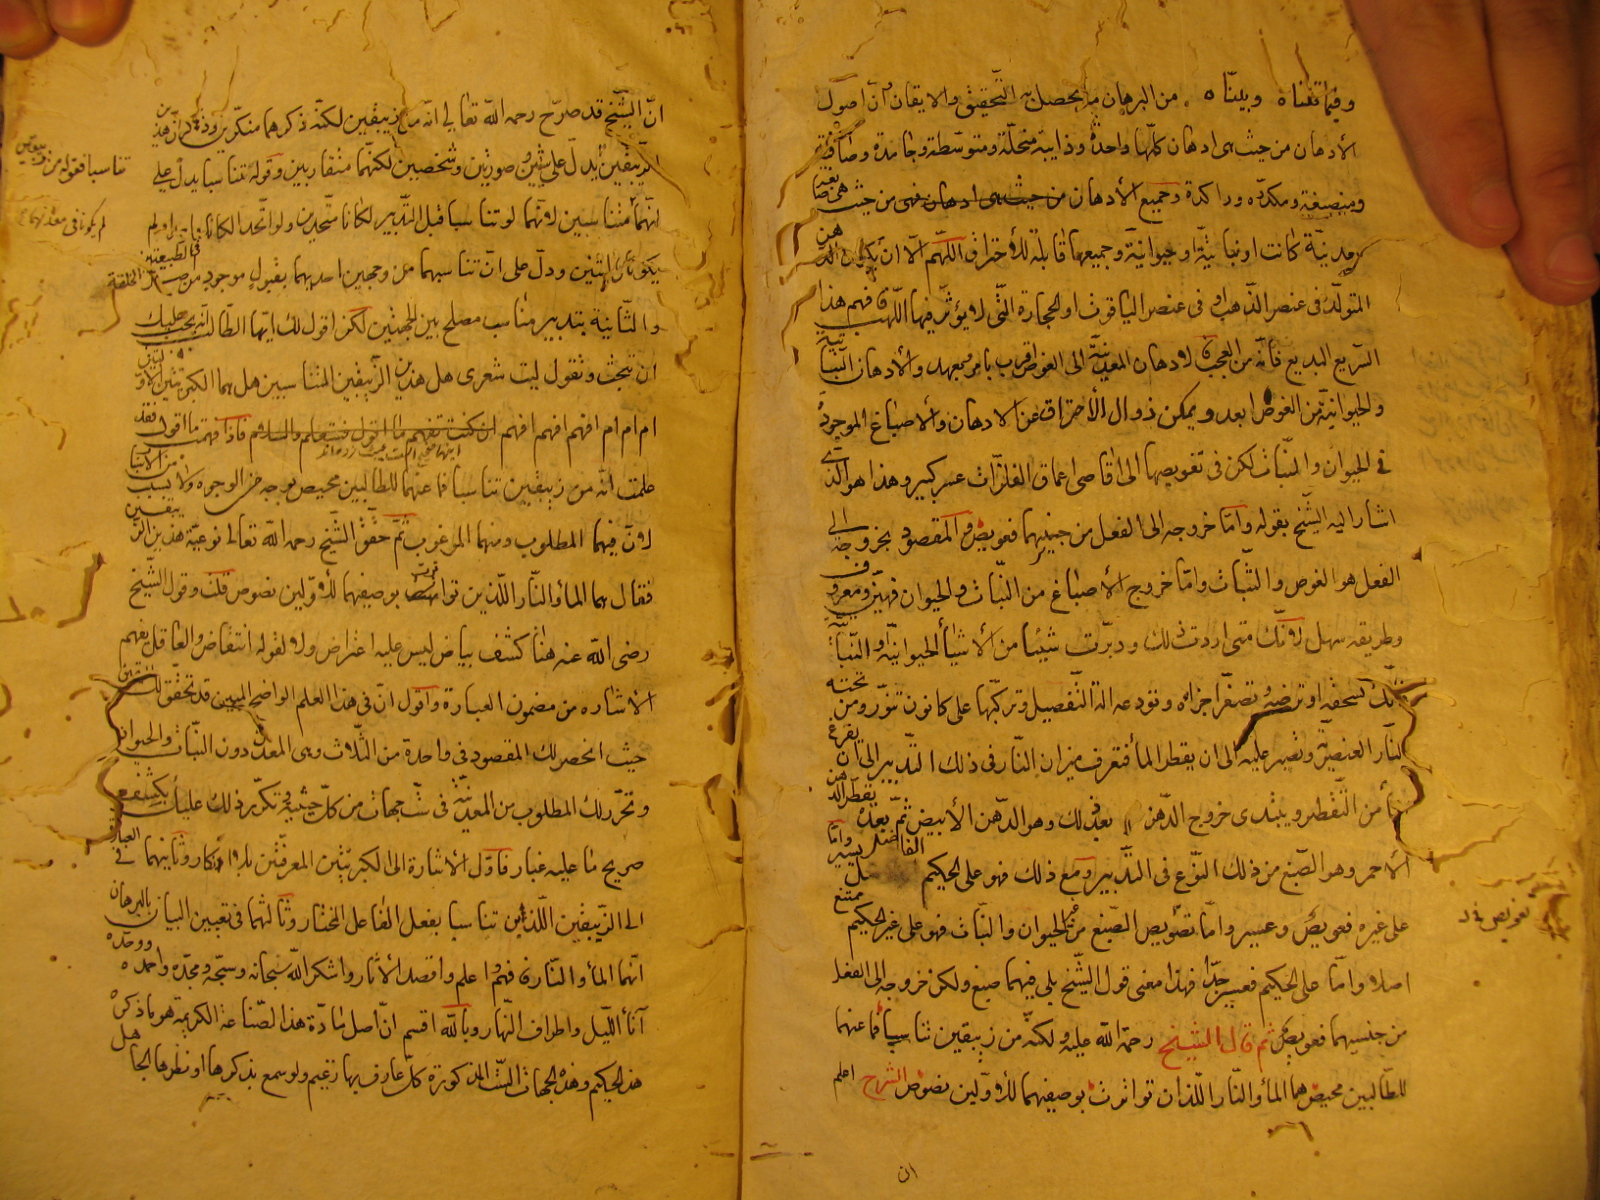 وفيما قلناه وبيناه من البرهان ما يحصل به التحقيق والايقان وان اصول
الادهان من حيث هى ادهان كلها واحدة وذايبة منحلة ومتوسطة وجامدة وصافية
ومنصبغة ومكدره وراكدة وجميع الأدهان من حيث هى ادهان فهى من حيث هى
معدنية كانت او نباتية او حيوانية وجميعها قابلة للاحتراق اللهم الا ان يكون الدهن
المتولد فى عنصر الذهب او فى عنصر الياقوت او الحجارة التى لا يؤثر فيها اللهب فهم هذا
السريع البديع فانه من العجب لادهان المعدنية الى الغواص اقرب بامر يعهد والأدهان النباتية
والحيوانية من الغوص ابعد ويمكن زوال الأحتراق عن الادهان والأصباغ الموجودة
فى الحيوان والنبات لكن فى تغويصها الى اقاصى اعماق الفلزات عسر كبير وهذا هو الذى
اشار اليه الشيخ بقوله واما خروجه الى الفعل من جنسيهما فعويص والمقصود بخروجه الى
الفعل هو الغوص والثبات واما خروج الأصباغ من النبات والحيوان فهين ومعروف
وطريقه سهل لانك متى اردت ذلك ودبرت شيئا من الأشياء الحيوانية والنباتية
فانك تسحقه او ترضه وتصغر اجزاه وتودعه الة التفصيل وتركبها على كانون تنور ومن تحته
النار العنصرية وتصبر عليه الى ان يقطر الماء فتعرف ميزان النار فى ذلك التدبير الى ان يفرغ
الماء من التقطير ويبتدى خروج الدهن بعد ذلك وهو الدهن الأبيض ثم بعده يقطر الدهن
الأحمر وهو الصبغ من ذلك النوع فى التدبير ومع ذلك فهو على الحكيم الفاضل يسير واما
على غيره فعويص وعسير واما تغويص الصبغ من الحيوان والنبات فهو على غير الحكيم ممتنع
اصلا واما على الحكيم فعسير جدا فهذا معنى قول الشيخ بلى فيهما صبغ ولكن خروجه الى الفعل
من جنسيهما فعويص ثم قال الشيخ رحمة الله عليه ولكنه من زيبقين تناسبا فما عنهما
للطالبين محيص هما الماء والنار اللذان تواترت بوصفيهما للاولين نصوص الشرح اعلم
تغويص فى
ان
ان الشيخ قد صرح رحمه الله تعالى انه من زيبقين لكنه ذكرهما منكرين
الزيبقين يدل على شيئين وصورتين وشخصين لكنهما متقاربين وقوله تناسبا يدل على
انهما متناسبين لانهما لو تناسبا قبل التدبير لكانا متحدين ولو اتحدا لكانا
يكونا اثنين ودل على ان تناسبهما من وجهين احديهما بقبول موجود من حيث الخلقة
والثانية بتدبير مناسب مصلح بين الجهتين لكن اقول لك ايها الطالب يجب عليك
ان تبحث وتقول ليت شعرى هل هذين الزيبقين المتناسبين هل هما الكبريتين الاولتين
ام ام ام افهم افهم افهم ان كنت تفهم ما اقول فستعلم والسلام فاذا فهمت ما اقول فقد
علمت انه من زيبقين تناسبا فما عنهما للطالبين محيص بوجه من الوجوه ولا بسبب من الاسباب
لان فيهما المطلوب ومنهما المرغوب ثم حقق الشيخ رحمه الله تعالى نوعية هذين الزيبقين
فقال هما الماء والنار اللذين تواترت بوصفيهما للاولين نصوص قلت وقول الشيخ
رضى الله عنه هنا كشف بياض ليس عليه اعتراض ولا لقوله انتقاض والعاقل يفهم
الاشاره من مضمون العبارة واقول ان فى هذا العلم الواضح المبين قد تحقق لك
حيث انحصر لك المقصود فى واحدة من الثلاث وهى المعدن دون النبات والحيوان
وتحرر لك المطلوب من المعدنية فى ست جهات من كل حيثية وتكرر ذلك عليك بكشف
صريح ما عليه غبار فاول الأشارة الى الكبريتين المعرفتين بلا انكار وثانيهما فى العبارة
الى الزيبقين اللذين تناسبا بفعل الفاعل المختار وثالثهما فى تعيين البيان بالبرهان
انهما الماء والنار فهم واعلم واقصد الأثار واشكر الله سبحانه وسبحه ومجده واحمده ووحده
آناء الليل واطراف النهار وبالله اقسم ان اصل مادة هذا الصناعة الكريمة هو ما ذكرن
هذا الحكيم وهذه الجهات الست المذكورة كل عارف بها زعيم ولو سمع بذكرها او نظرها الجاهل